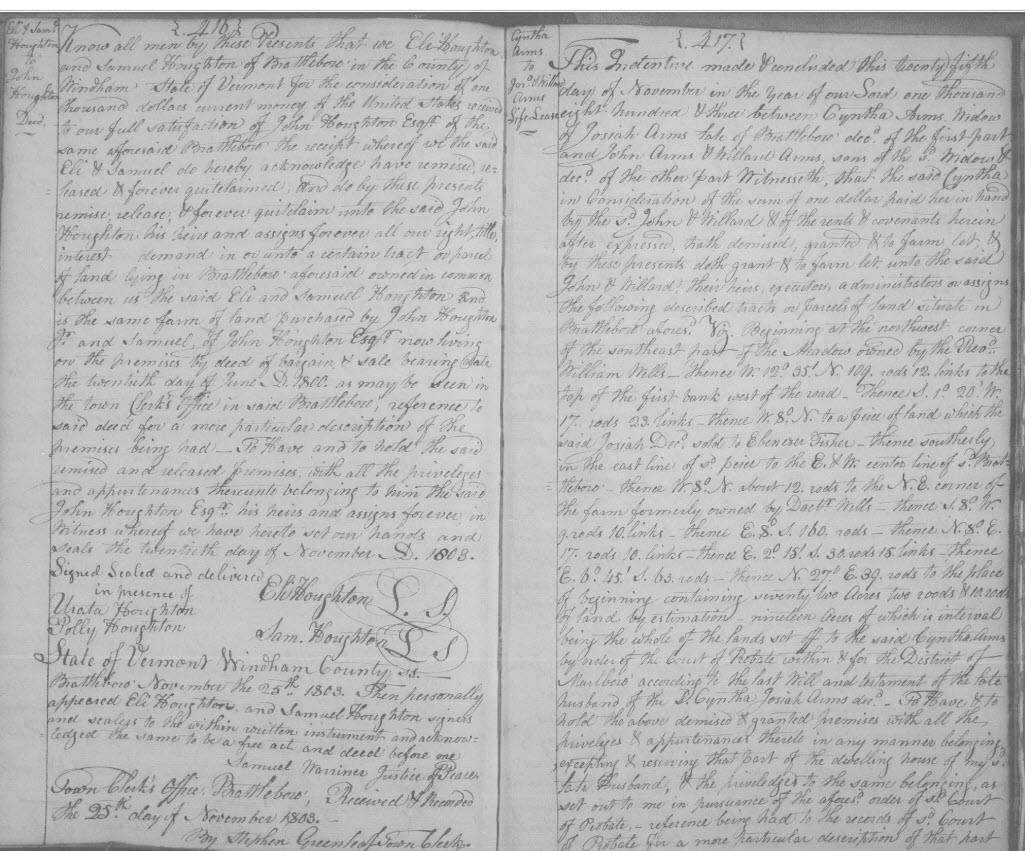 {416}
Eli & Saml
Houghton
to
John
Houghton
Deed.
Know all men by these Presents that we Eli Houghton
and Samuel Houghton of Brattleboro in the County of
Windham State of Vermont for the consideration of one
thousand dollars current money of the United States received
to our full satisfaction of John Houghton Esqr. of the
same aforesaid Brattleboro the receipt whereof we the said
Eli & Samuel do hereby acknowledge have remised, re-
leased & forever quitclaimed, and do by these presents
remise, release, & forever quitclaim unto the said John
Houghton his heirs and assigns forever all our right, title,
interest demand in or unto a certain tract or parcel
of land lying in Brattleboro aforesaid owned in common
between us the said Eli and Samuel Houghton and
is the same farm of land purchased by John Houghton
Jr. and Samuel, of John Houghton Esqr. now living
on the premises by deed of bargain & sale bearing date
the twentieth day of June D. 1800. as may be seen in
the town Clerk's office in said Brattleboro, reference to
said deed for a more particular description of the
premises being had — To Have and to hold the said
remised and released premises, with all the priveleges
and appurtenances thereunto belonging to him the said
John Houghton Esqr. his heirs and assigns forever in
Witness whereof we have hereto set our hands and
seals the twentieth day of November D. 1803.
Signed Sealed and delivered
in presence of
Urata Houghton
Polly Houghton
Eli Houghton L. S
Sam. Houghton L S
State of Vermont Windham County ss.
Brattleboro November the 25th 1803. Then personally
appeared Eli Houghton, and Samuel Houghton signers
and sealers to the within written instrument and acknow-
ledged the same to be a free act and deed before me
Samuel Warriner Justice of Peace
Town Clerk's Office Brattleboro, Received & Recorded
the 25th day of November 1803. —
By Stephen Greenleaf Town Clerk.
{417.}
Cyntha
Arms
to
Jno. & Willard
Arms
Life Lease
This Indenture made & concluded this twenty fifth
day of November in the Year of our Lord one thousand
eight hundred & three between Cyntha Arms. Widow
of Josiah Arms late of Brattleboro decd. of the first part
and John Arms & Willard Arms, sons of the sd. Widow &
decd. of the other part Witnesseth, that the said Cyntha
in Consideration of the sum of one dollar paid her in hand
by the sd. John & Willard & of the rents & covenants herein
after expressed, hath demised, granted & to farm let, &
by these presents doth grant & to farm let, unto the said
John & Willard, their heirs, executors, administrators or assigns
the following described tracts or parcels of land situate in
Brattleboro aforesd. Viz. Beginning at the northwest corner
of the southeast part of the Meadow owned by the Revd.
William Wells — thence W. 12° 35' N. 109. rods 12. links to the
top of the first bank west of the road — Thence S. 1° 20' W.
17. rods 23. links — thence W. 8° N. to a piece of land which the
said Josiah Decd. sold to Ebenezer Fisher — thence southerly
in the east line of sd. peice to the E. & W. center line of sd. Brat-
tleboro — thence W. 8° N. about 12. rods to the N. E. corner of
the farm formerly owned by Doctr. Wells — thence S. 8° W.
9. rods 10. links — thence E. 8° S. 160. rods — thence N. 8° E.
17. rods 10. links — thence E. 2° 15' S. 30 rods 15. links — thence
E. 6° 45' S. 63. rods — thence N. 27° E. 39. rods to the place
of beginning containing seventy two Acres two roods & 10 rods
of land by estimation — nineteen Acres of which is interval
being the whole of the lands set off to the said Cyntha Arms
by order of the Court of Probate within & for the District of
Marlboro according to the last Will and testament of the late
husband of the sd. Cyntha Josiah Arms decd. — To Have & to
hold the above demised & granted premises with all the
priveleges & appurtenances thereto in any manner belonging,
excepting & reserving that part of the dwelling house of my sd.
late Husband, & the priviledges to the same belonging, as
set out to me in pursuance of the aforesd. order of sd. Court
of Probate, — reference being had to the records of sd. Court
of Probate for a more particular description of that part